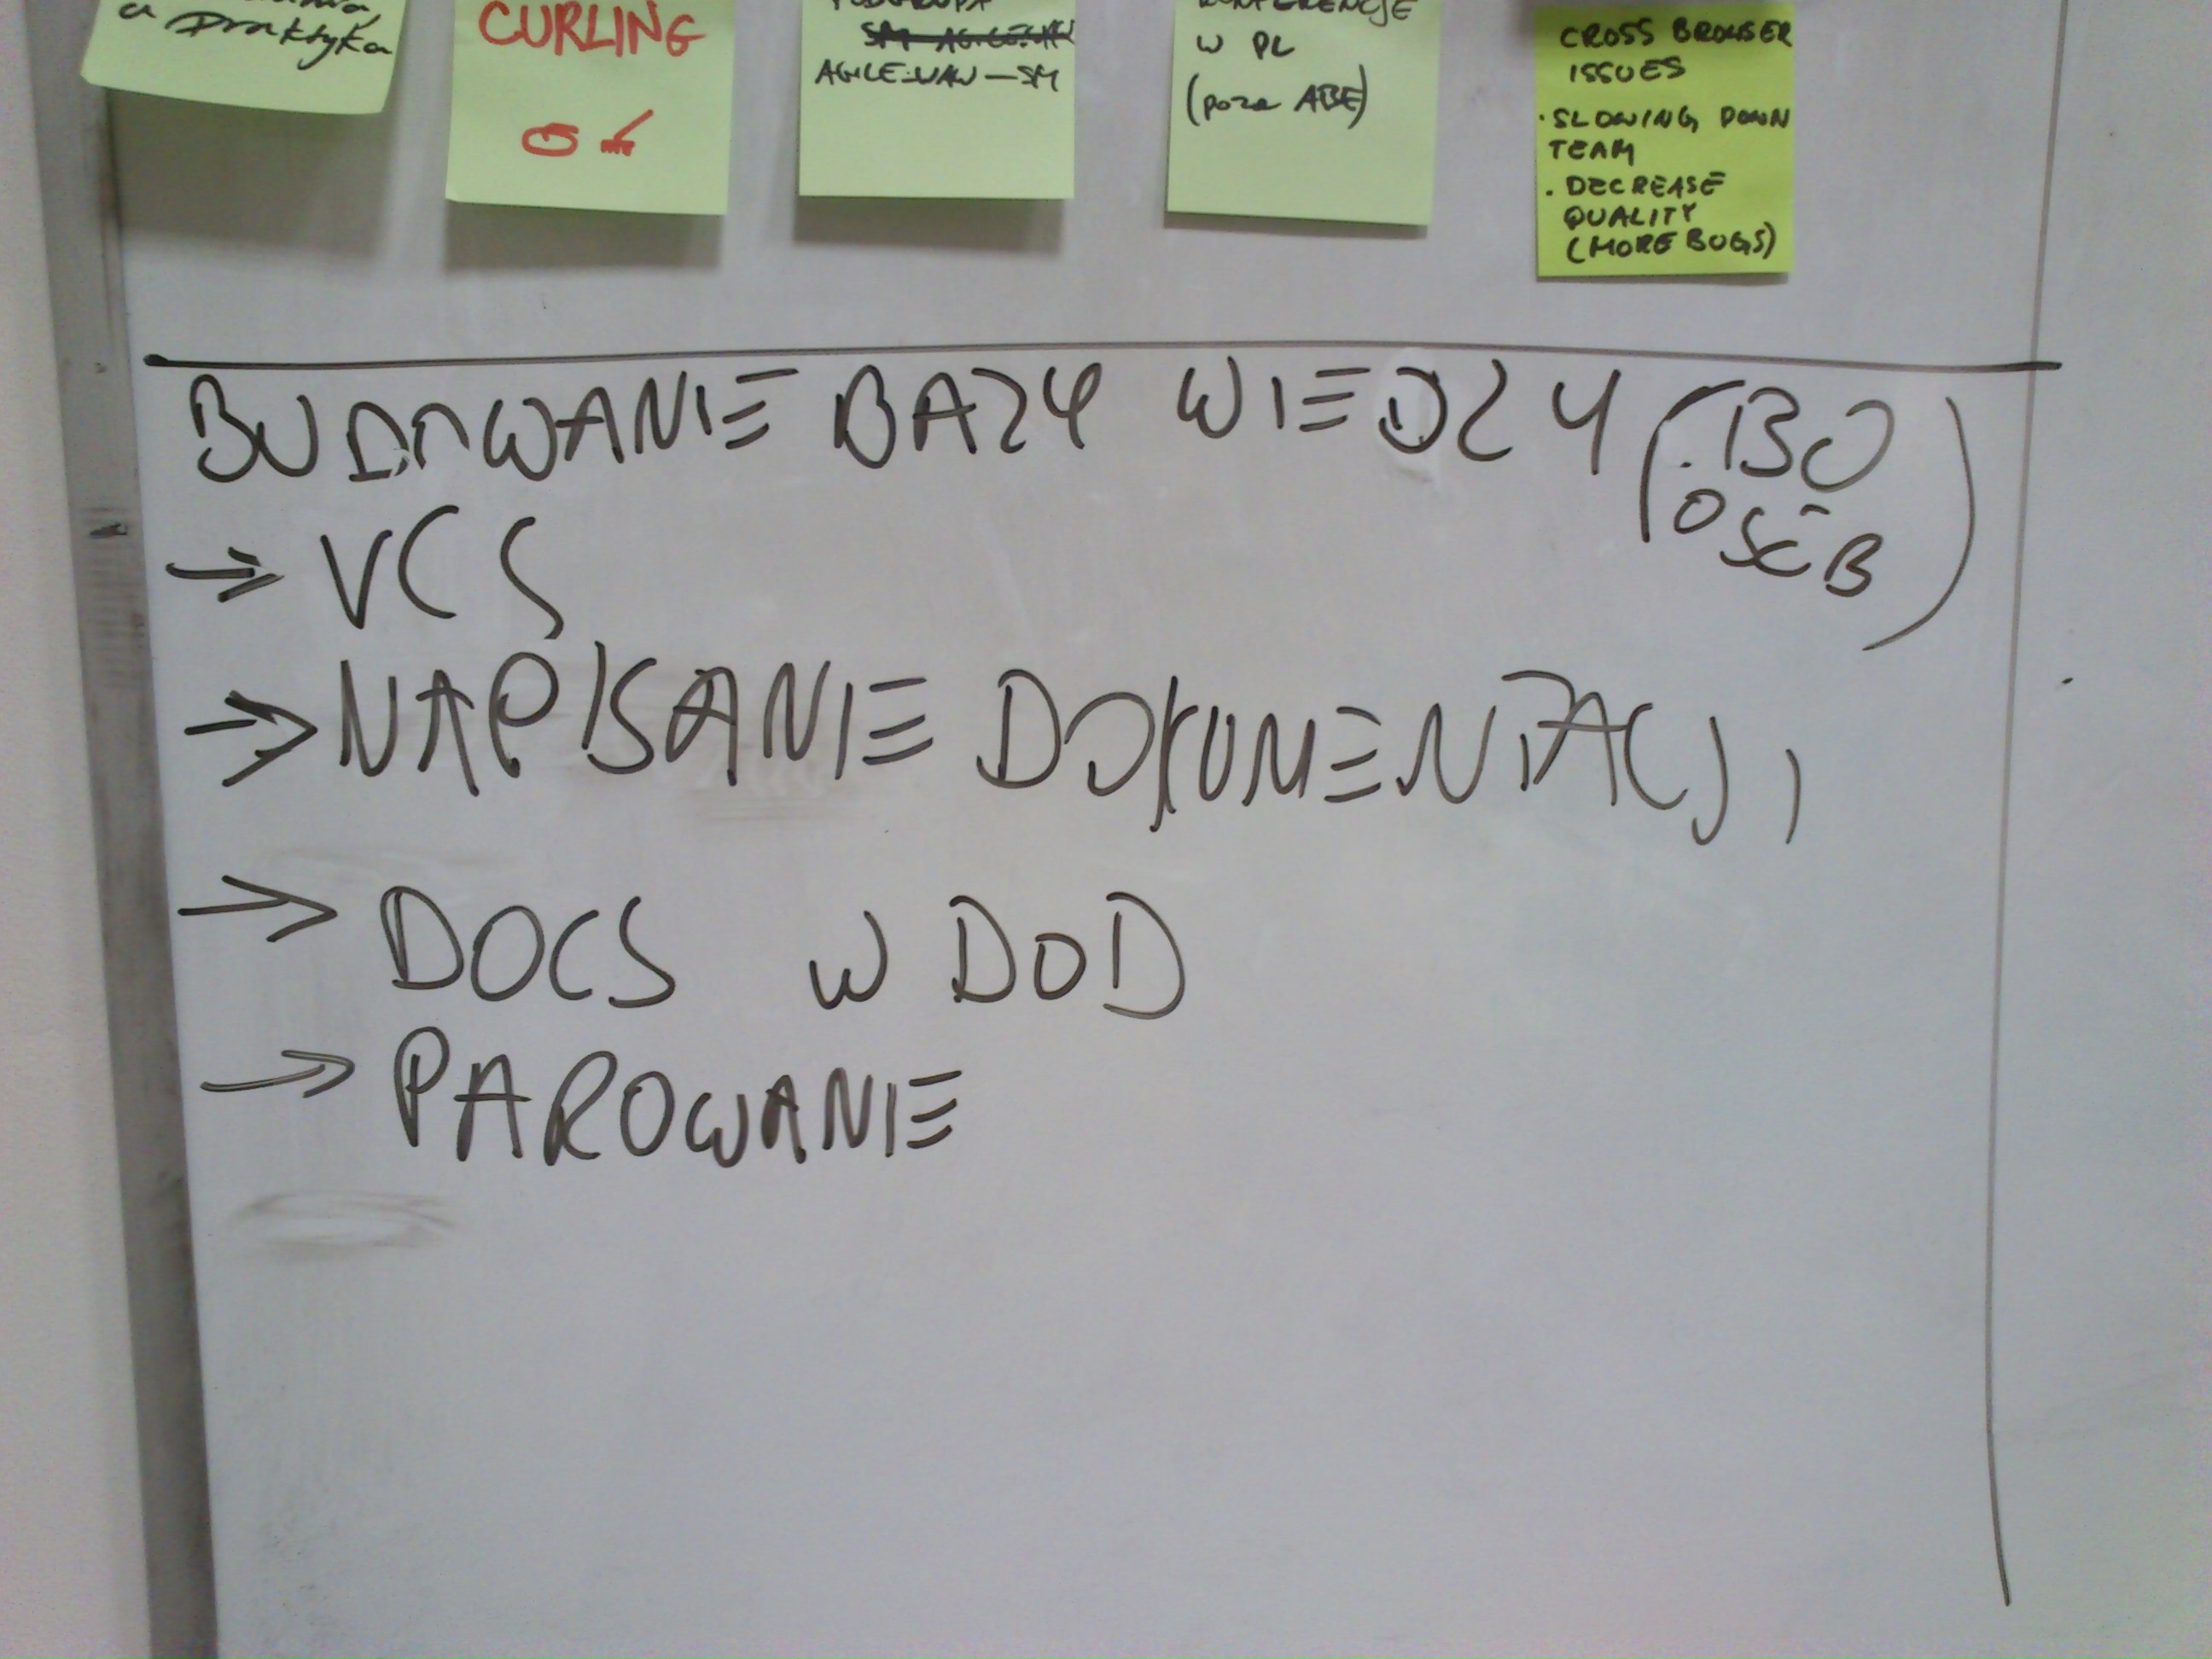 a praktyka
CURLING
AGILE-UAW-SM
KONFERENCJE
W PL
(poza ABE)
CROSS BROWSER
ISSUES
· SLOWING DOWN
TEAM
· DECREASE
QUALITY
(MORE BUGS)
BUDOWANIE BAZY WIEDZY (BO
OSÓB)
→ VCS
→ NAPISANIE DOKUMENTACJI
→ DOCS W DOD
→ PAROWANIE